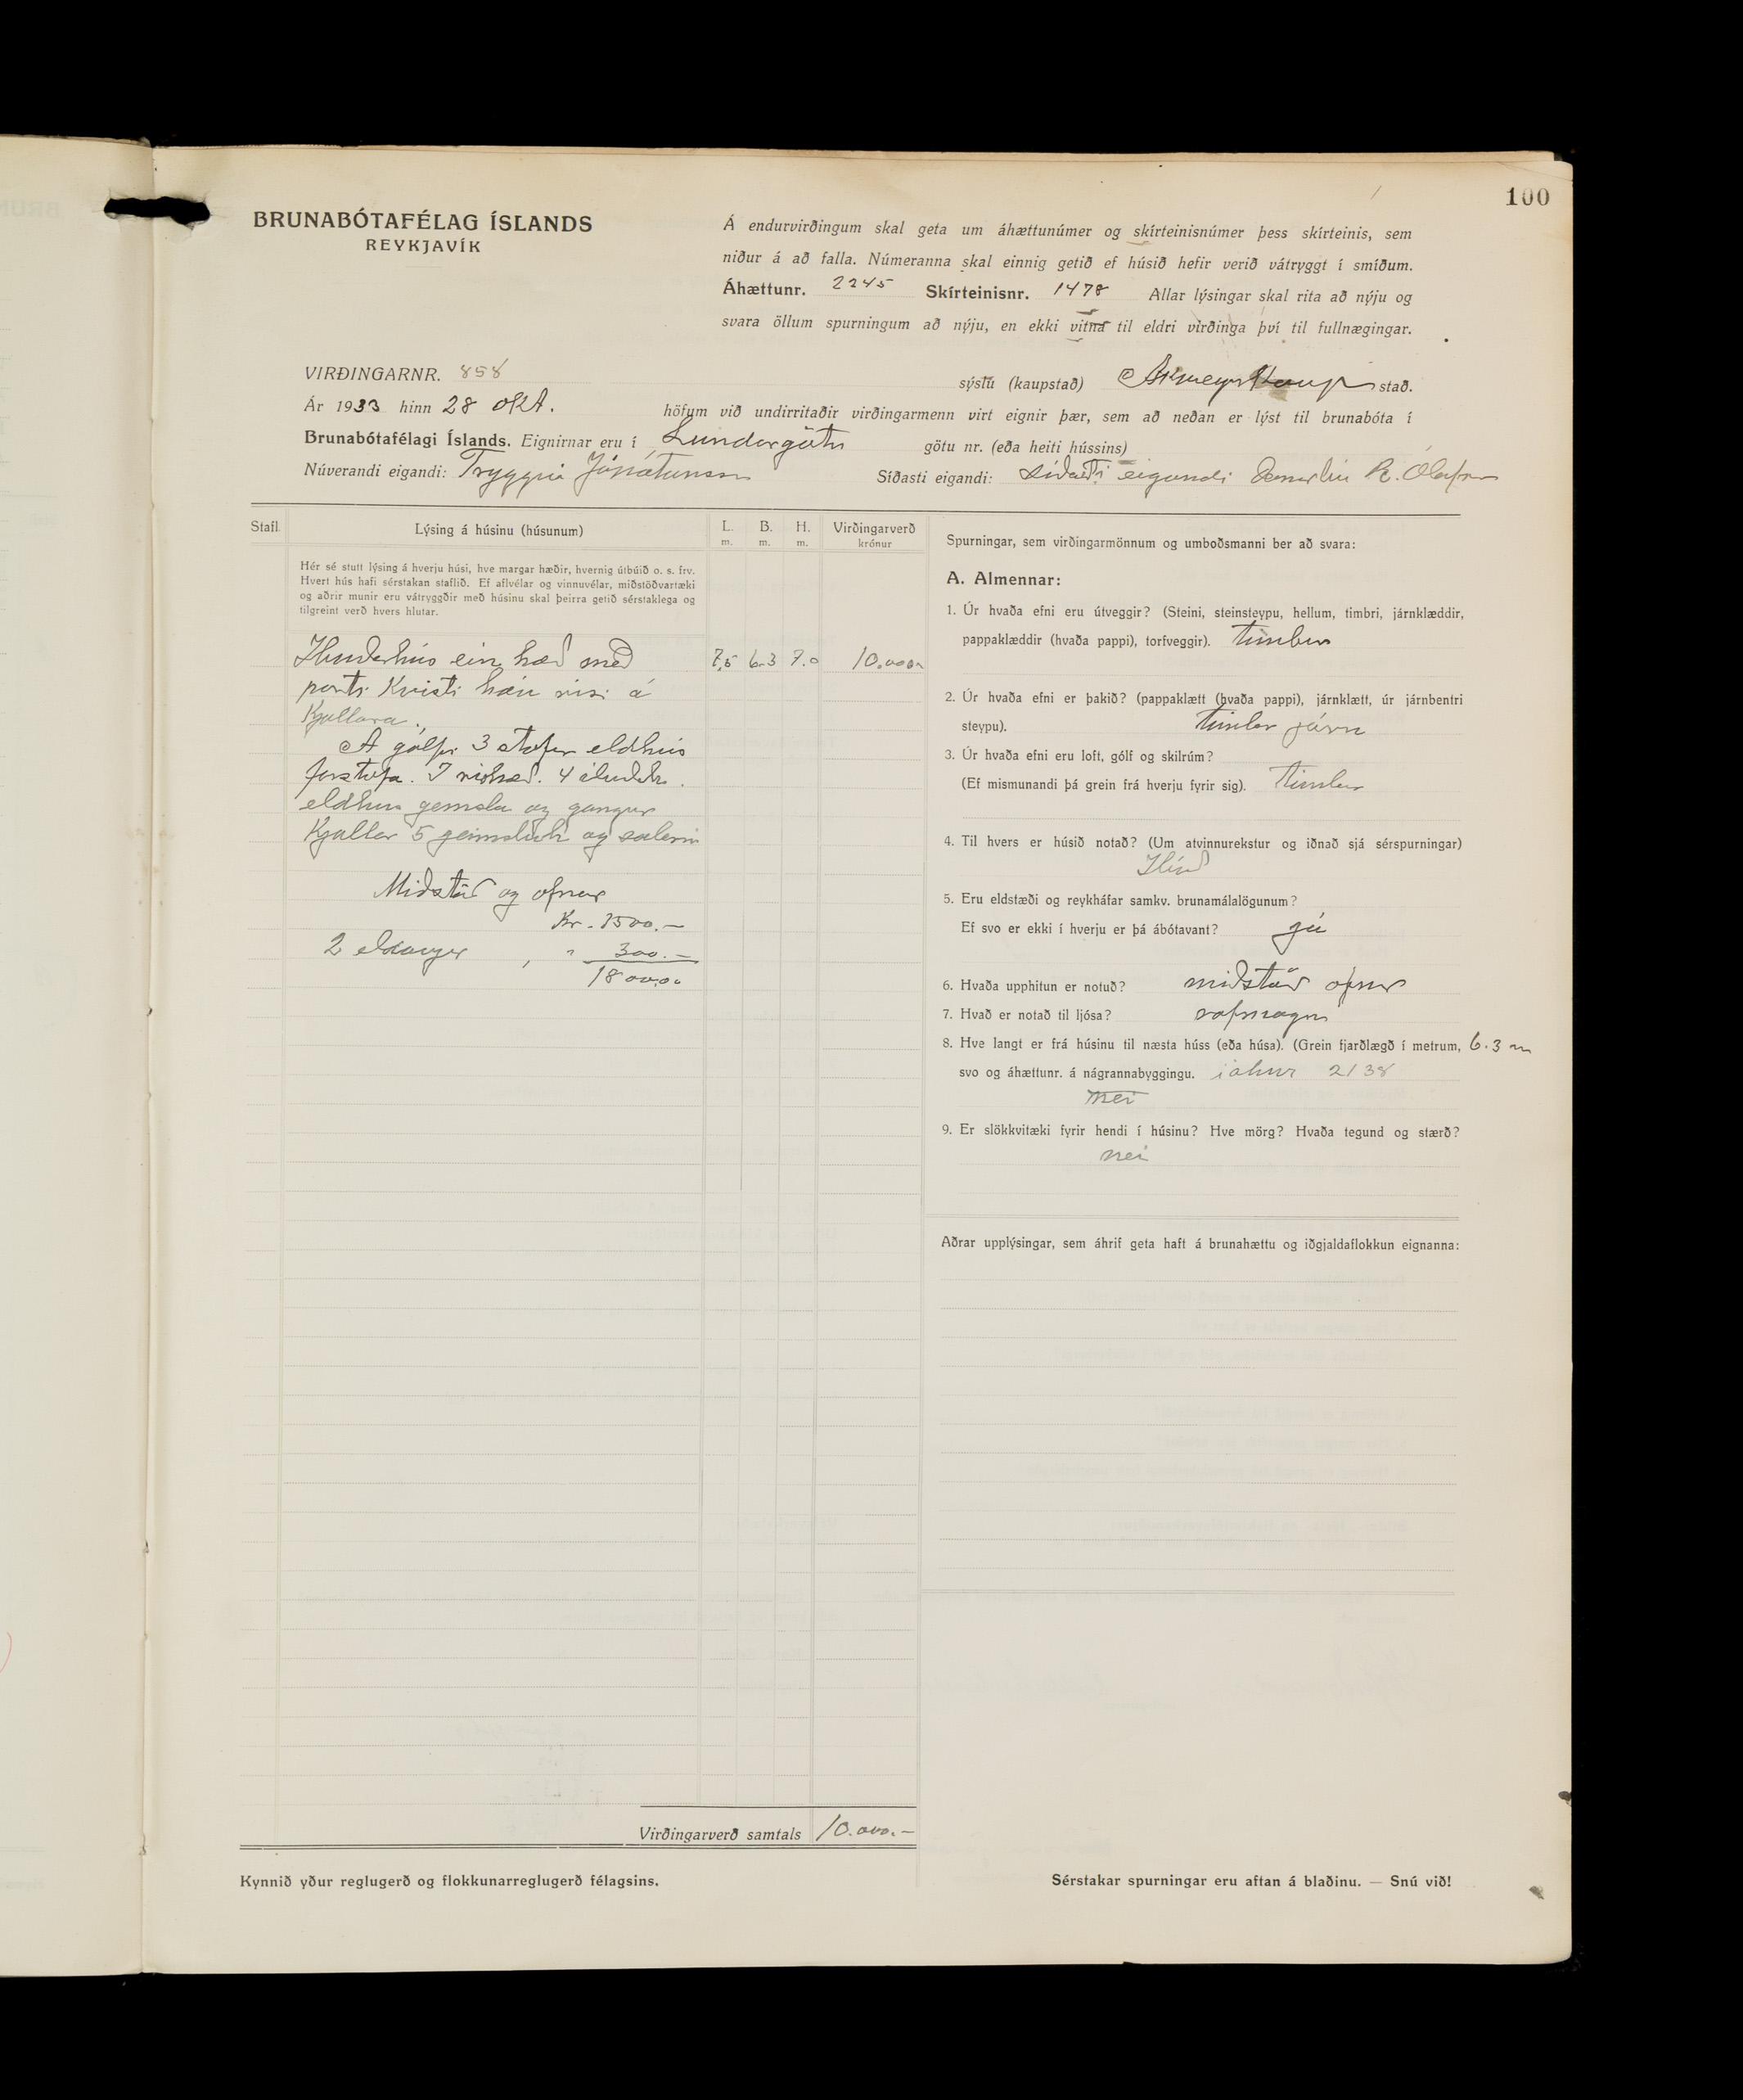 100
BRUNABÓTAFÉLAG ÍSLANDS
REYKJAVÍK
Á endurvirðingum skal geta um áhættunúmer og skírteinisnúmer þess skírteinis, sem
niður á að falla. Númeranna skal einnig getið ef húsið hefir verið vátryggt í smíðum.
Áhættunr. 2245 Skírteinisnr. 1478 Allar lýsingar skal rita að nýju og
svara öllum spurningum að nýju, en ekki vitna til eldri virðinga því til fullnægingar.
VIRÐINGARNR. 858
sýslu (kaupstað) Akureyrarkaupstað.
Ár 1933 hinn 28 okt. höfum við undirritaðir virðingarmenn virt eignir þær, sem að neðan er lýst til brunabóta í
Brunabótafélagi Íslands. Eignirnar eru í Lundargötu götu nr. (eða heiti hússins)
Núverandi eigandi: Tryggvi Jónatansson Síðasti eigandi: síðasti eigandi R. Ólafsson
Stafl. Lýsing á húsinu (húsunum) L. m. B. m. H. m. Virðingarverð krónur
Hér sé stutt lýsing á hverju húsi, hve margar hæðir, hvernig útbúið o. s. frv.
Hvert hús hafi sérstakan staflið. Ef aflvélar og vinnuvélar, miðstöðvartæki
og aðrir munir eru vátryggðir með húsinu skal þeirra getið sérstaklega og
tilgreint verð hvers hlutar.
Íbúðarhús ein hæð með 7,5 6.3 7.0 10.000
porti Kvisti háu risi á
Kjallara.
Á gólfi 3 stofur eldhús
forstofa. Í rishæð. 4
eldhús gemsla og gangur
Kjallar 5 geimsluh og salerni
Miðstöð og ofnar
Kr. 1500.—
2 eldavjer " 300.—
18000.00
Virðingarverð samtals 10.000.—
Spurningar, sem virðingarmönnum og umboðsmanni ber að svara:
A. Almennar:
1. Úr hvaða efni eru útveggir? (Steini, steinsteypu, hellum, timbri, járnklæddir,
pappaklæddir (hvaða pappi), torfveggir). timbur
2. Úr hvaða efni er þakið? (pappaklætt (hvaða pappi), járnklætt, úr járnbentri
steypu). timbur járn
3. Úr hvaða efni eru loft, gólf og skilrúm?
(Ef mismunandi þá grein frá hverju fyrir sig). timbur
4. Til hvers er húsið notað? (Um atvinnurekstur og iðnað sjá sérspurningar)
Íbúð
5. Eru eldstæði og reykháfar samkv. brunamálalögunum?
Ef svo er ekki í hverju er þá ábótavant? já
6. Hvaða upphitun er notuð? miðstöð ofnar
7. Hvað er notað til ljósa? rafmagn
8. Hve langt er frá húsinu til næsta húss (eða húsa). (Grein fjarðlægð í metrum, 6.3 m
svo og áhættunr. á nágrannabyggingu. 2138
nei
9. Er slökkvitæki fyrir hendi í húsinu? Hve mörg? Hvaða tegund og stærð?
nei
Aðrar upplýsingar, sem áhrif geta haft á brunahættu og iðgjaldaflokkun eignanna:
Kynnið yður reglugerð og flokkunarreglugerð félagsins.
Sérstakar spurningar eru aftan á blaðinu. — Snú við!